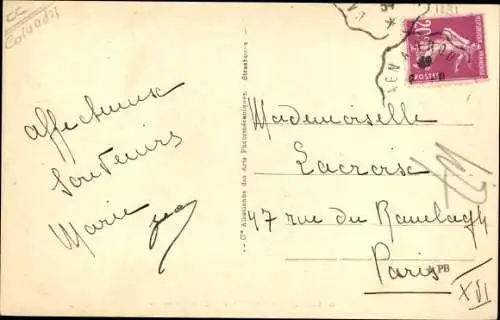 CC
Calvados
20c
POSTES
AEN
Affectueux
Souvenirs
Marie
Cie Alsacienne des Arts Photomécaniques, Strasbourg
Mademoiselle
Lacroise
47 rue du Ranelagh
Paris
APB
XVI